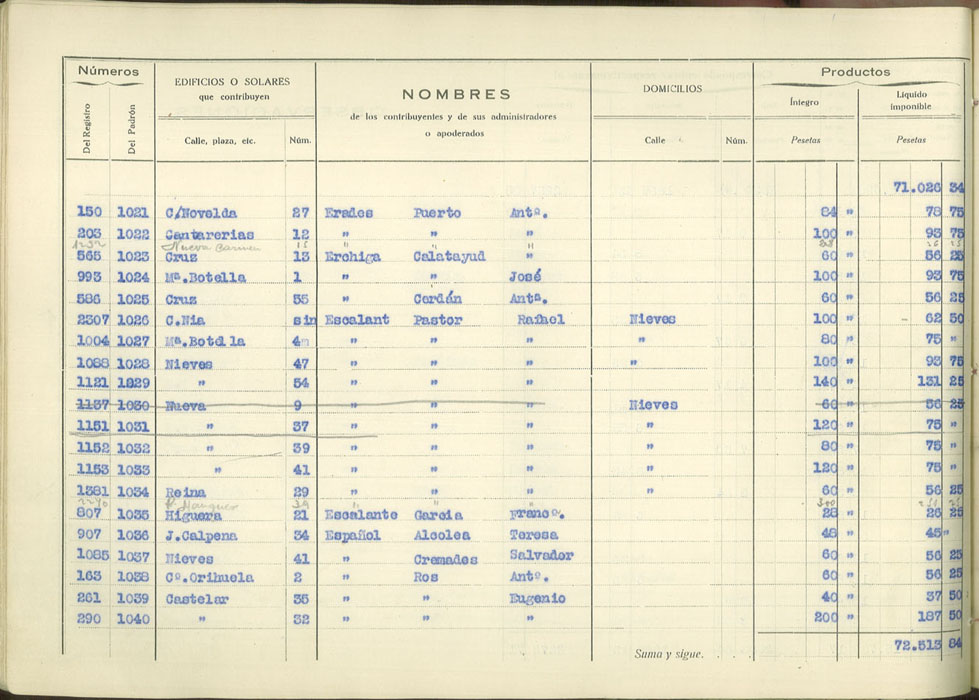 Números
Del Registro
Del Padrón
EDIFICIOS O SOLARES
que contribuyen
Calle, plaza, etc.
Núm.
NOMBRES
de los contribuyentes y de sus administradores
o apoderados
DOMICILIOS
Calle
Núm.
Productos
Íntegro
Pesetas
Líquido
imponible
Pesetas
71.026 34
150 1021 C/Novelda 27 Erades Puerto Antº. 84 " 78 75
203 1022 Cantarerias 12 " " " 100 " 93 75
1232 Nueva Carmen 15 " " "
565 1023 Cruz 13 Erchiga Calatayud " 60 " 56 25
993 1024 Mª.Botella 1 " " José 100 " 93 75
586 1025 Cruz 55 " Cerdán Antª. 60 " 56 25
2307 1026 C.Nia sin Escalant Pastor Rafael Nieves 100 " 62 50
1004 1027 Mª.Botella 4 " " " " 80 " 75 "
1088 1028 Nieves 47 " " " " 100 " 93 75
1121 1029 " 54 " " " 140 " 131 25
1137 1030 Nueva 9 " " " Nieves 60 " 56 25
1151 1031 " 37 " " " " 120 " 75 "
1152 1032 " 39 " " " " 80 " 75 "
1153 1033 " 41 " " " " 120 " 75 "
1381 1034 Reina 29 " " " " 60 " 56 25
807 1035 Higuera 21 Escalante Garcia Francº. 28 " 26 25
907 1036 J.Calpena 34 Español Alcolea Teresa 48 " 45 "
1085 1037 Nieves 41 " Cremades Salvador 60 " 56 25
163 1038 Cº.Orihuela 2 " Ros Antº. 60 " 56 25
261 1039 Castelar 35 " " Eugenio 40 " 37 50
290 1040 " 32 " " " 200 " 187 50
Suma y sigue. 72.513 84